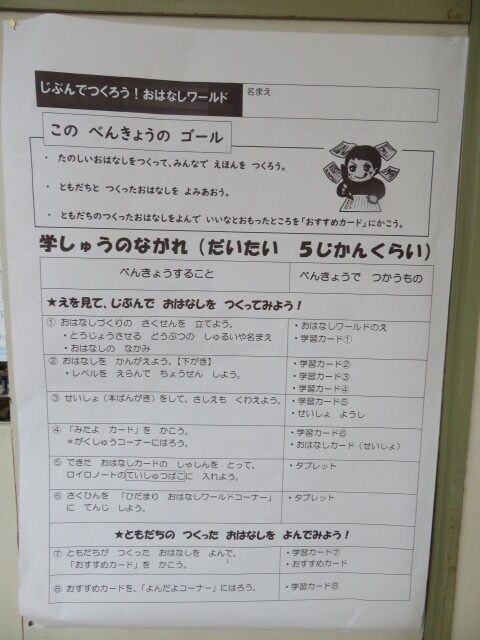 じぶんでつくろう！おはなしワールド
名まえ
この べんきょうの ゴール
・ たのしいおはなしをつくって、みんなで えほんを つくろう。
・ ともだちと つくったおはなしを よみあおう。
・ ともだちのつくったおはなしをよんで いいなとおもったところを「おすすめカード」にかこう。
学しゅうのながれ（だいたい ５じかんくらい）
べんきょうすること
べんきょうで つかうもの
★えを見て、じぶんで おはなしを つくってみよう！
① おはなしづくりの さくせんを 立てよう。
・とうじょうさせる どうぶつの しゅるいや名まえ
・おはなしの なかみ
・おはなしワールドのえ
・学習カード①
② おはなしを かんがえよう。【下がき】
・レベルを えらんで ちょうせん しよう。
・学習カード②
・学習カード③
・学習カード④
③ せいしょ（本ばんがき）をして、さしえも くわえよう。
・学習カード⑤
・せいしょ ようし
④ 「みたよ カード」を かこう。
＊がくしゅうコーナーにはろう。
・学習カード⑥
・おはなしカード（せいしょ）
⑤ できた おはなしカードの しゃしんを とって、
ロイロノートのていしゅつばこに 入れよう。
・タブレット
⑥ さくひんを 「ひだまり おはなしワールドコーナー」
に てんじ しよう。
・タブレット
★ともだちの つくった おはなしを よんでみよう！
⑦ ともだちが つくった おはなしを よんで、
「おすすめカード」を かこう。
・学習カード⑦
・おすすめカード
⑧ おすすめカードを、「よんだよコーナー」にはろう。
・学習カード⑧